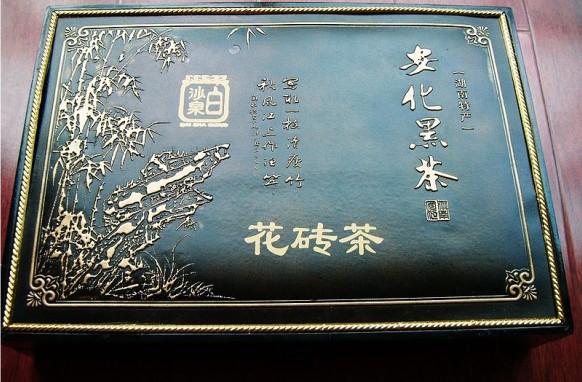 安化黑茶
〔湖南特产〕
写取一枝清瘦竹
秋风江上作渔竿
白沙泉
BAI SHA QUAN
花砖茶